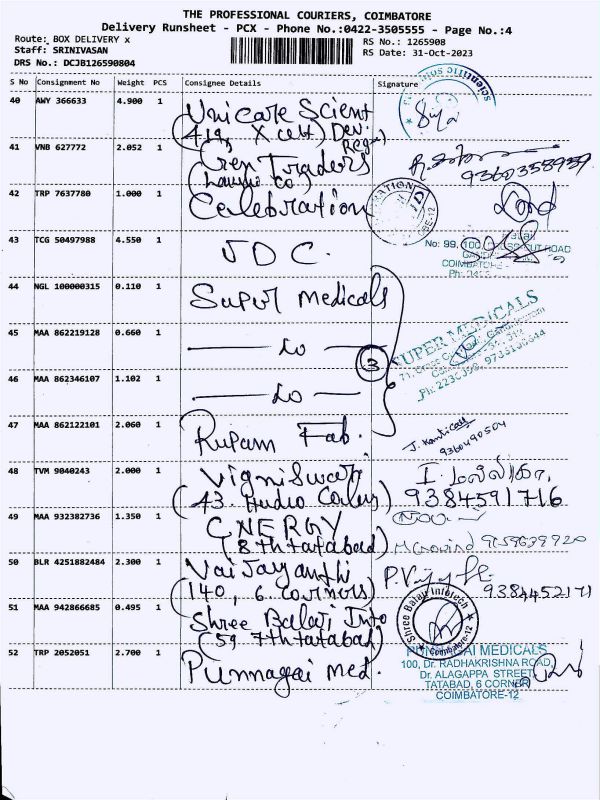 THE PROFESSIONAL COURIERS, COIMBATORE
Delivery Runsheet - PCX - Phone No.:0422-3505555 - Page No.:4
Route: BOX DELIVERY x
RS No.: 1265908
Staff: SRINIVASAN
RS Date: 31-Oct-2023
DRS No.: DCJB126590804
S No Consignment No Weight PCS Consignee Details Signature
40 AWY 366633 4.900 1 Unicare Scient
(419, X cut) Dev.
41 VNB 627772 2.052 1 Traders
9360358939
42 TRP 7637780 1.000 1 Celebration
43 TCG 50497988 4.550 1 JDC.
No: 99, 100, ROAD
COIMBATORE
44 NGL 100000315 0.110 1 Super Medicals
45 MAA 862219128 0.660 1 — do —
3
SUPER MEDICALS
46 MAA 862346107 1.102 1 — do —
47 MAA 862122101 2.060 1 Rupam Fab.
9360490504
48 TVM 9040243 2.000 1 Vigniswar
(43.
I. மல்லிகா,
9384591716
49 MAA 932382736 1.350 1 CNERGY
(8th tatabad)
9159639920
50 BLR 4251882484 2.300 1 Vaijayanthi
(140, 6. corners)
9384452171
51 MAA 942866685 0.495 1 Shree Balaji Info
(59 7th tatabad)
Shree Balaji Infotech
Coimbatore-12
52 TRP 2052051 2.700 1 Punnagai med.
PUNNAGAI MEDICALS
100, Dr. RADHAKRISHNA ROAD,
Dr. ALAGAPPA STREET,
TATABAD, 6 CORNER
COIMBATORE-12